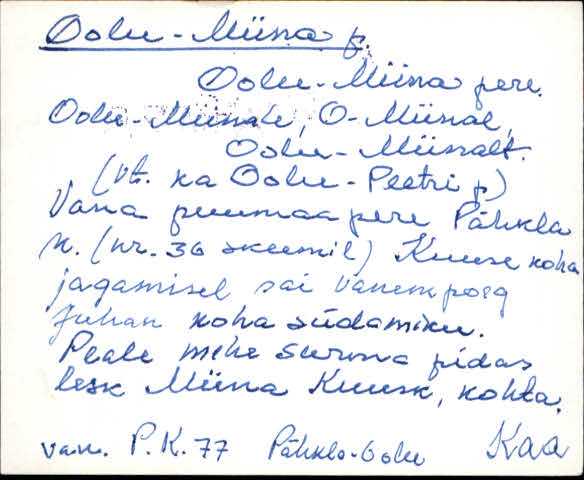 Oolu-Miina p.
Oolu-Miina pere.
Oolu-Miinale, O-Miinal,
Oolu-Miinalt.
(vt. ka Oolu-Peetri p)
Vana puumaa pere Pähkla
k. (nr. 36 skeemil) Kuuse koha
jagamisel sai vanem poeg
Juhan koha südamiku.
Peale mehe surma pidas
lesk Miina Kuusk, kohta.
van. P.K. 77 Pähkla-Oolu Kaa